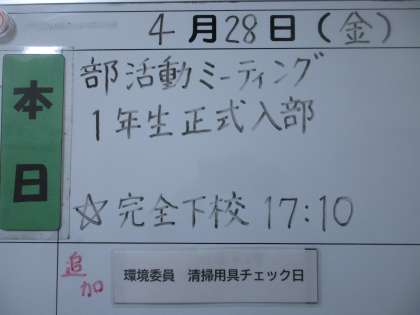 4月28日(金)
本日
部活動ミーティング
1年生正式入部
☆完全下校 17:10
追加
環境委員 清掃用具チェック日